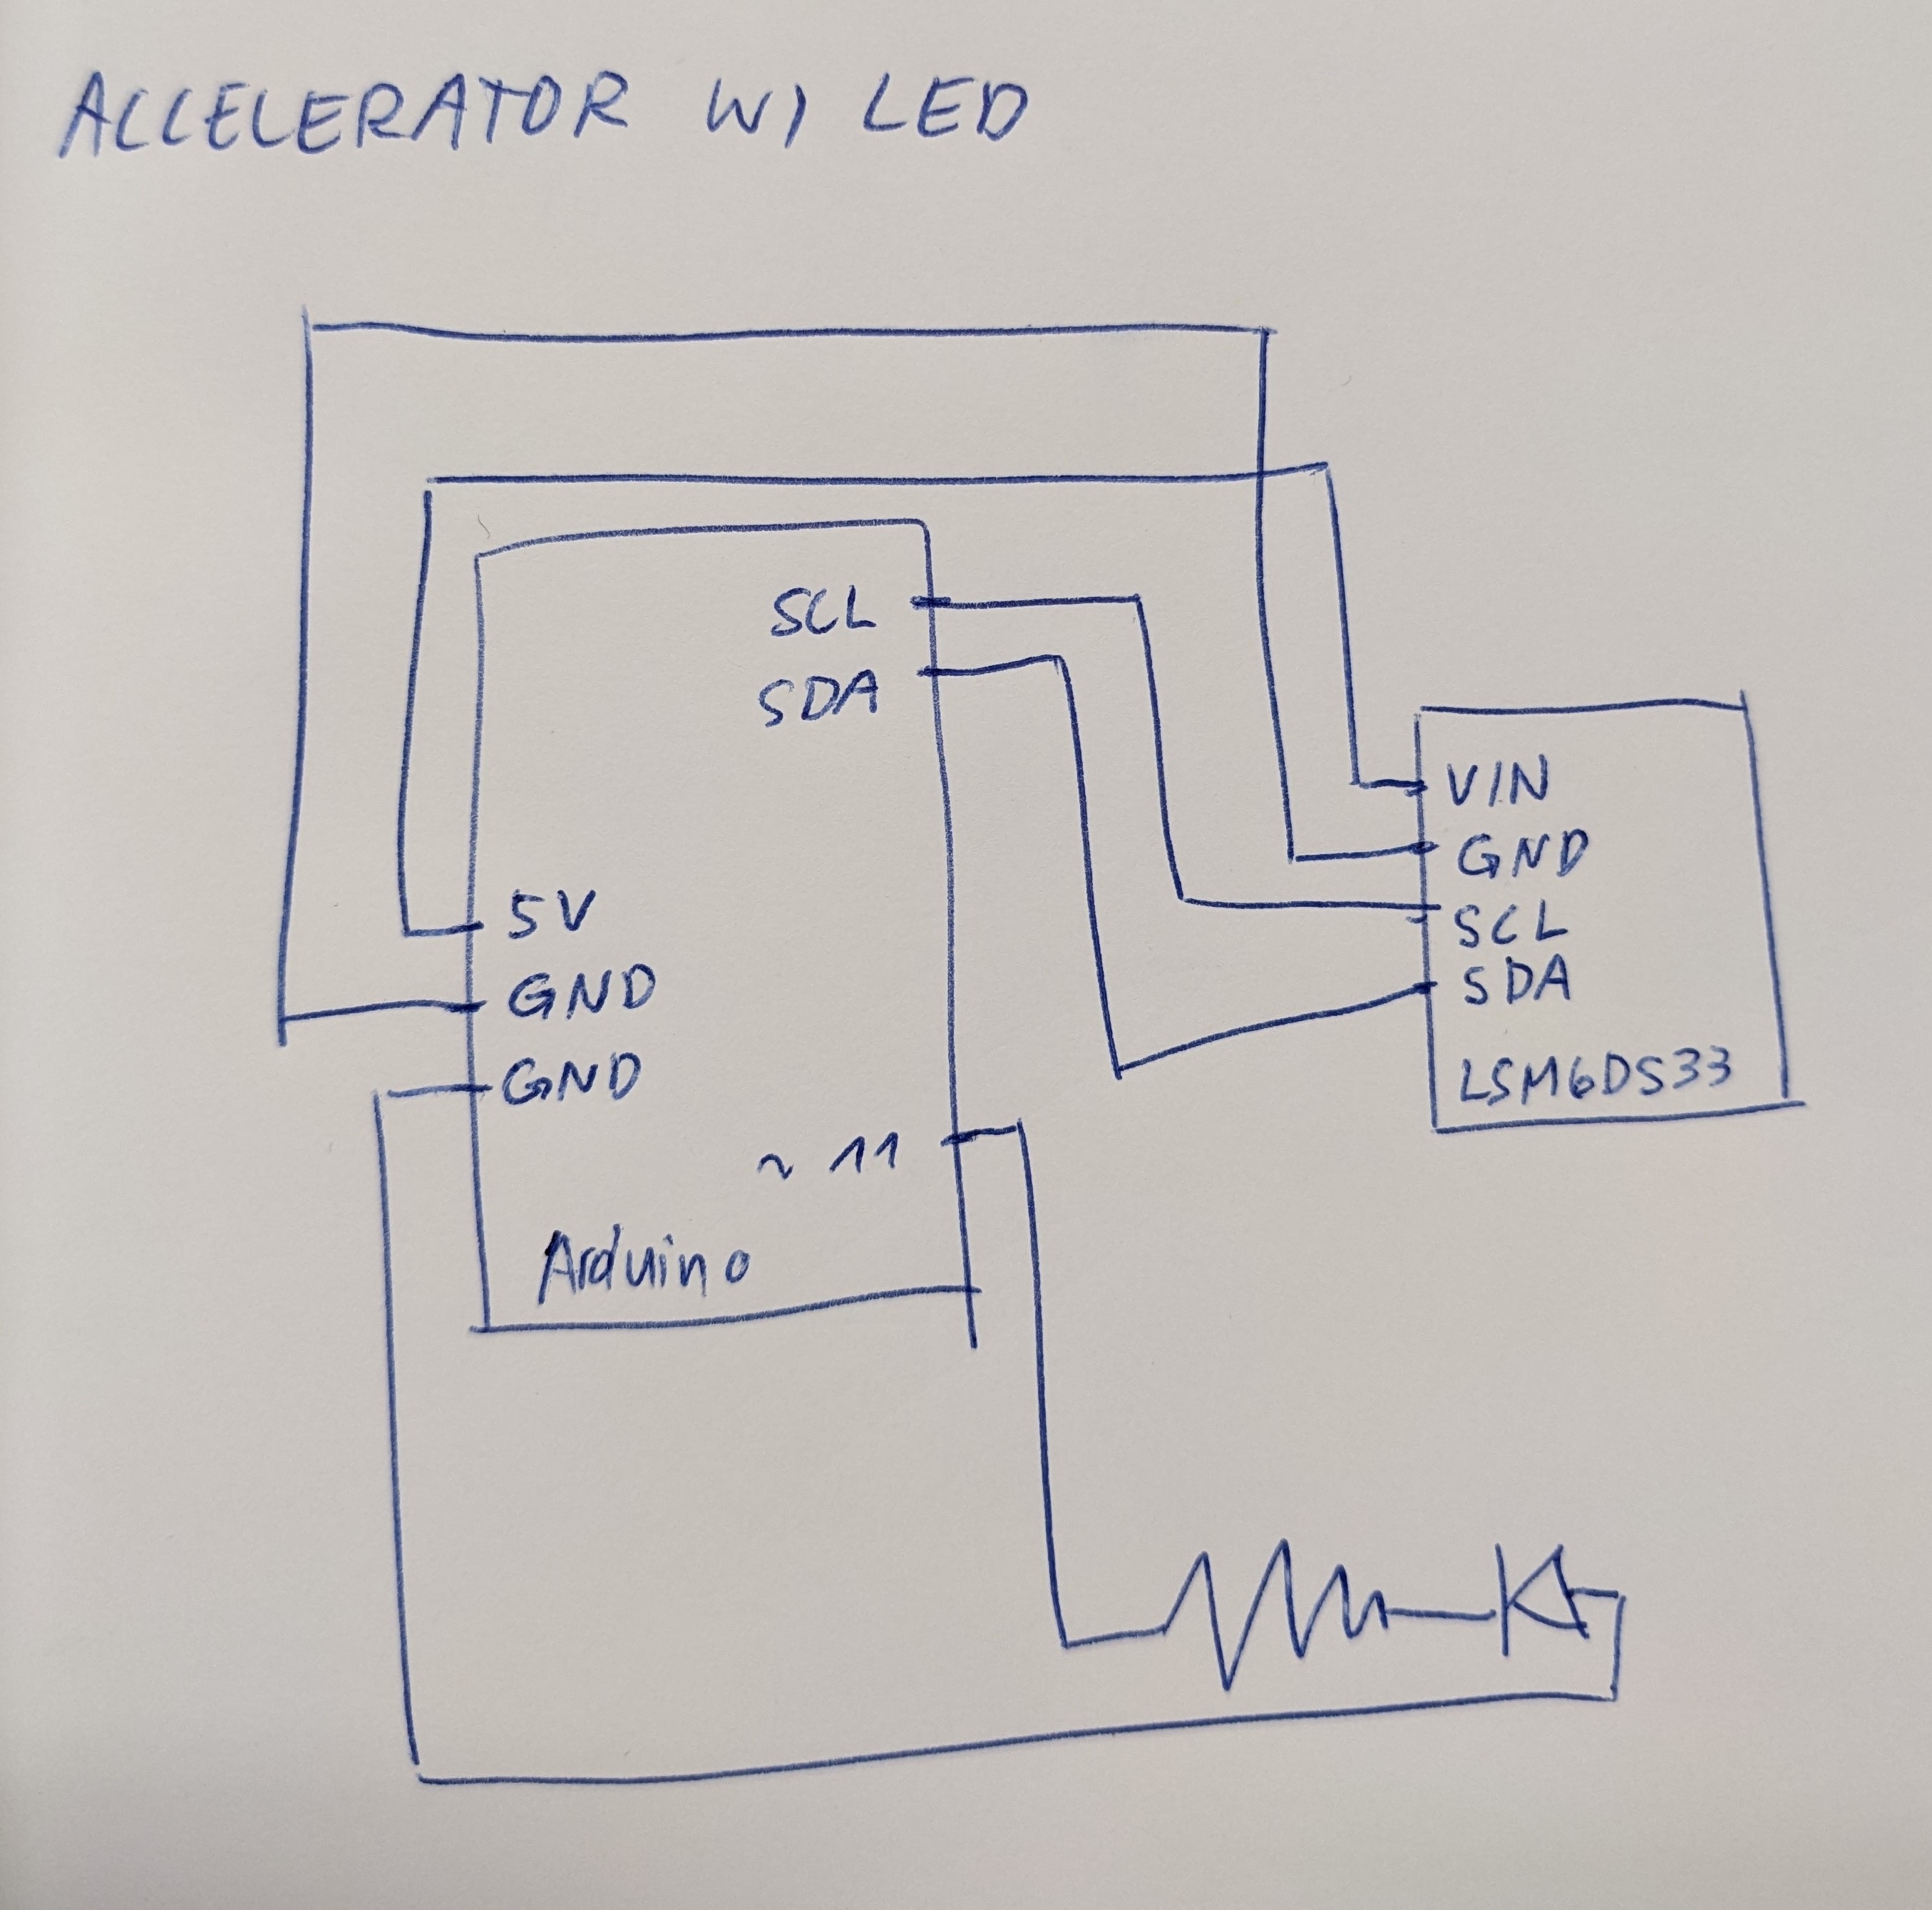 ACCELERATOR W/ LED
SCL
SDA
5V
GND
GND
~ 11
Arduino
VIN
GND
SCL
SDA
LSM6DS33